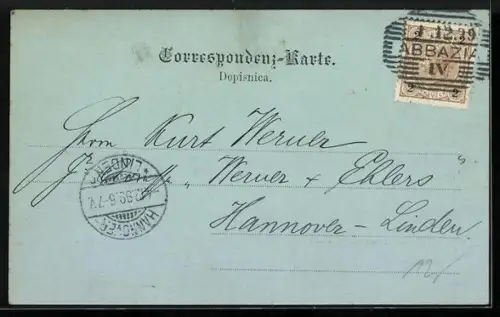 Correspondenz-Karte.
Dopisnica.
1 12.99
ABBAZIA
IV
2 2
Herrn Kurt Werner
"Werner & Ehlers"
Hannover-Linden.
HANNOVER
LINDEN